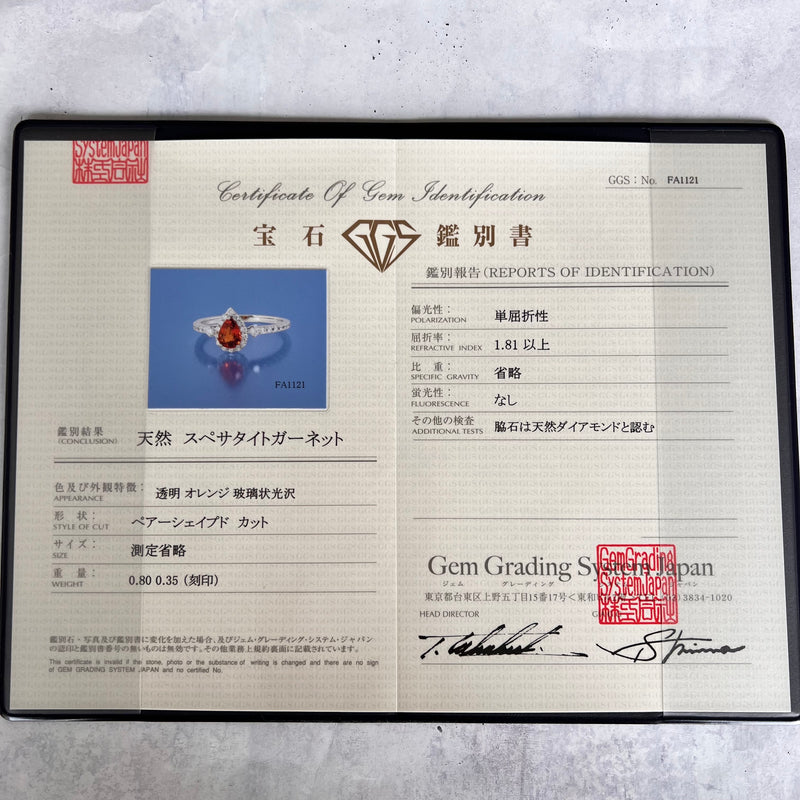 SystemJapan
Certificate Of Gem Identification
宝石 GGS 鑑別書
FA1121
鑑別結果 (CONCLUSION) 天然 スペサタイトガーネット
色及び外観特徴： APPEARANCE 透明 オレンジ 玻璃状光沢
形 状： STYLE OF CUT ペアーシェイプド カット
サイズ： SIZE 測定省略
重 量： WEIGHT 0.80 0.35 (刻印)
鑑別石・写真及び鑑別書に変化を加えた場合、及びジェム・グレーディング・システム・ジャパン
の認印と鑑別書番号の無いものは無効です。その他業務上規約裏面に記載されています。
This certificate is invalid if the stone, photo or the substance of writing is changed and there are no sign
of GEM GRADING SYSTEM JAPAN and no certified No.
GGS：No. FA1121
鑑別報告(REPORTS OF IDENTIFICATION)
偏光性： POLARIZATION 単屈折性
屈折率： REFRACTIVE INDEX 1.81 以上
比 重： SPECIFIC GRAVITY 省略
蛍光性： FLUORESCENCE なし
その他の検査 ADDITIONAL TESTS 脇石は天然ダイアモンドと認む
Gem Grading System Japan
ジェム グレーディング
東京都台東区上野五丁目15番17号 3834-1020
HEAD DIRECTOR
GemGrading
SystemJapan